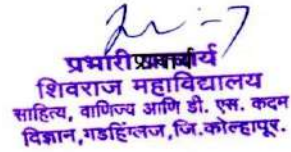 प्रभारी प्राचार्य
शिवराज महाविद्यालय
साहित्य, वाणिज्य आणि डी. एस. कदम
विज्ञान, गडहिंग्लज, जि.कोल्हापूर.